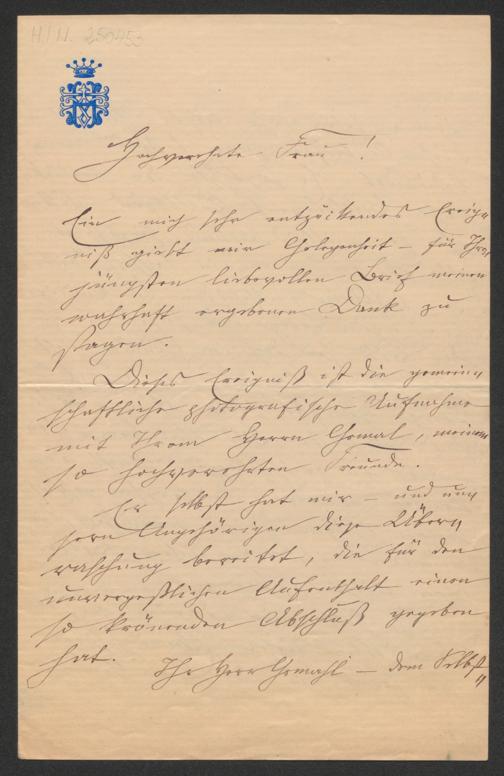 H.I.N. 250453
Hochverehrte Frau!
Ein mich sehr entzückendes Ereig„
niß giebt mir Gelegenheit – für Ihren
jüngsten liebevollen Brief meinen
wahrhaft ergebenen Dank zu
sagen.
Dieses Ereigniß ist die gemein„
schaftliche photografische Aufnahme
mit Ihrem Herrn Gemal, meinem
so hochverehrten Freunde.
Er selbst hat mir – und uns
sern Angehörigen diese Über„
raschung bereitet, die für den
unvergeßlichen Aufenthalt einen
so krönenden Abschluß gegeben
hat.
Ihr Herr Gemahl – dem Selbst„